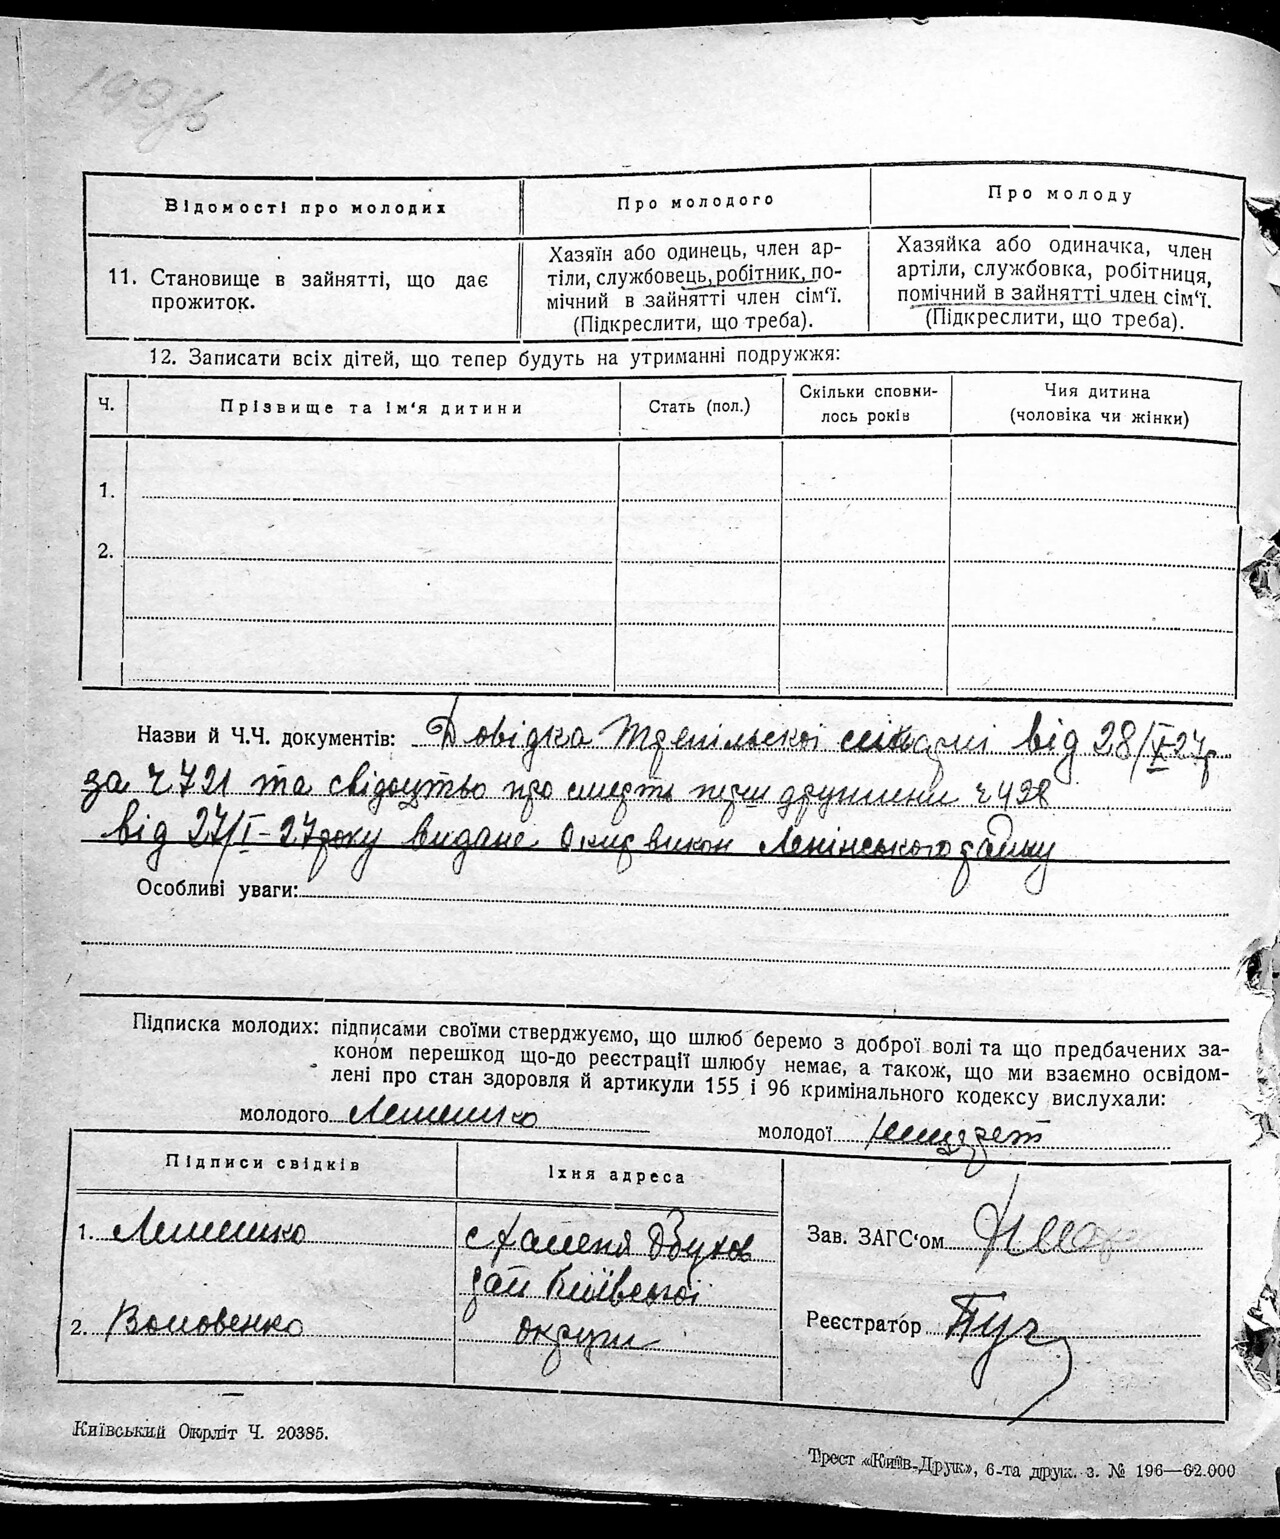 Відомості про молодих
Про молодого
Про молоду
11. Становище в зайнятті, що дає
прожиток.
Хазяїн або одинець, член ар-
тіли, службовець, робітник, по-
мічний в зайнятті член сім'ї.
(Підкреслити, що треба).
Хазяйка або одиначка, член
артіли, службовка, робітниця,
помічний в зайнятті член сім'ї.
(Підкреслити, що треба).
12. Записати всіх дітей, що тепер будуть на утриманні подружжя:
Ч.
Прізвище та ім'я дитини
Стать (пол.)
Скільки сповни-
лось років
Чия дитина
(чоловіка чи жінки)
1.
2.
Назви й Ч.Ч. документів: Довідка Трепільської від 28/X-27р
за ч 721 та свідоцтво про смерть дружини ч 428
від 27/I-27 року видане Ленінського району
Особливі уваги:
Підписка молодих: підписами своїми стверджуємо, що шлюб беремо з доброї волі та що предбачених за-
коном перешкод що-до реєстрації шлюбу немає, а також, що ми взаємно освідом-
лені про стан здоровля й артикули 155 і 96 кримінального кодексу вислухали:
молодого Лемешко
молодої
Підписи свідків
Їхня адреса
1. Лемешко
с Халепя Обухов
рай Київської
2. Воловенко
округи
Зав. ЗАГС'ом
Реєстратор
Київський Окрліт Ч. 20385.
Трест «Київ-Друк», 6-та друк. з. № 196—62.000